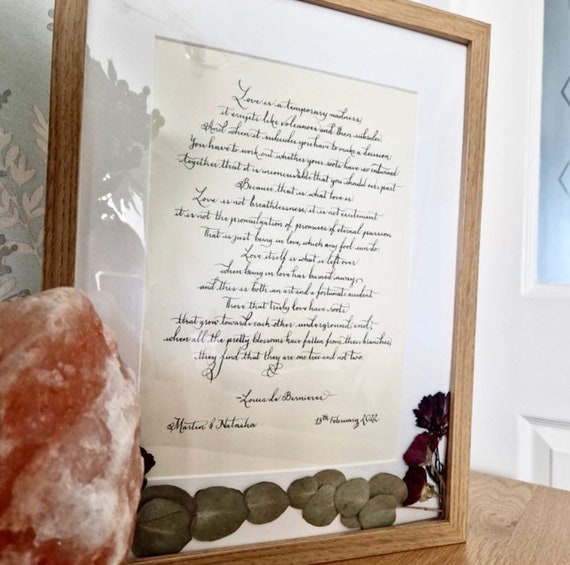 Love is a temporary madness,
it erupts like volcanoes and then subsides.
And when it subsides you have to make a decision.
You have to work out whether your roots have so entwined
together that it is inconceivable that you should ever part.
Because that is what love is.
Love is not breathlessness, it is not excitement,
it is not the promulgation of promises of eternal passion.
That is just being in love, which any fool can do.
Love itself is what is left over
when being in love has burned away,
and this is both an art and a fortunate accident.
Those that truly love have roots
that grow towards each other underground, and,
when all the pretty blossoms have fallen from their branches,
they find that they are one tree and not two.
~Louis de Bernieres
Martin & Natasha
18th February 2022